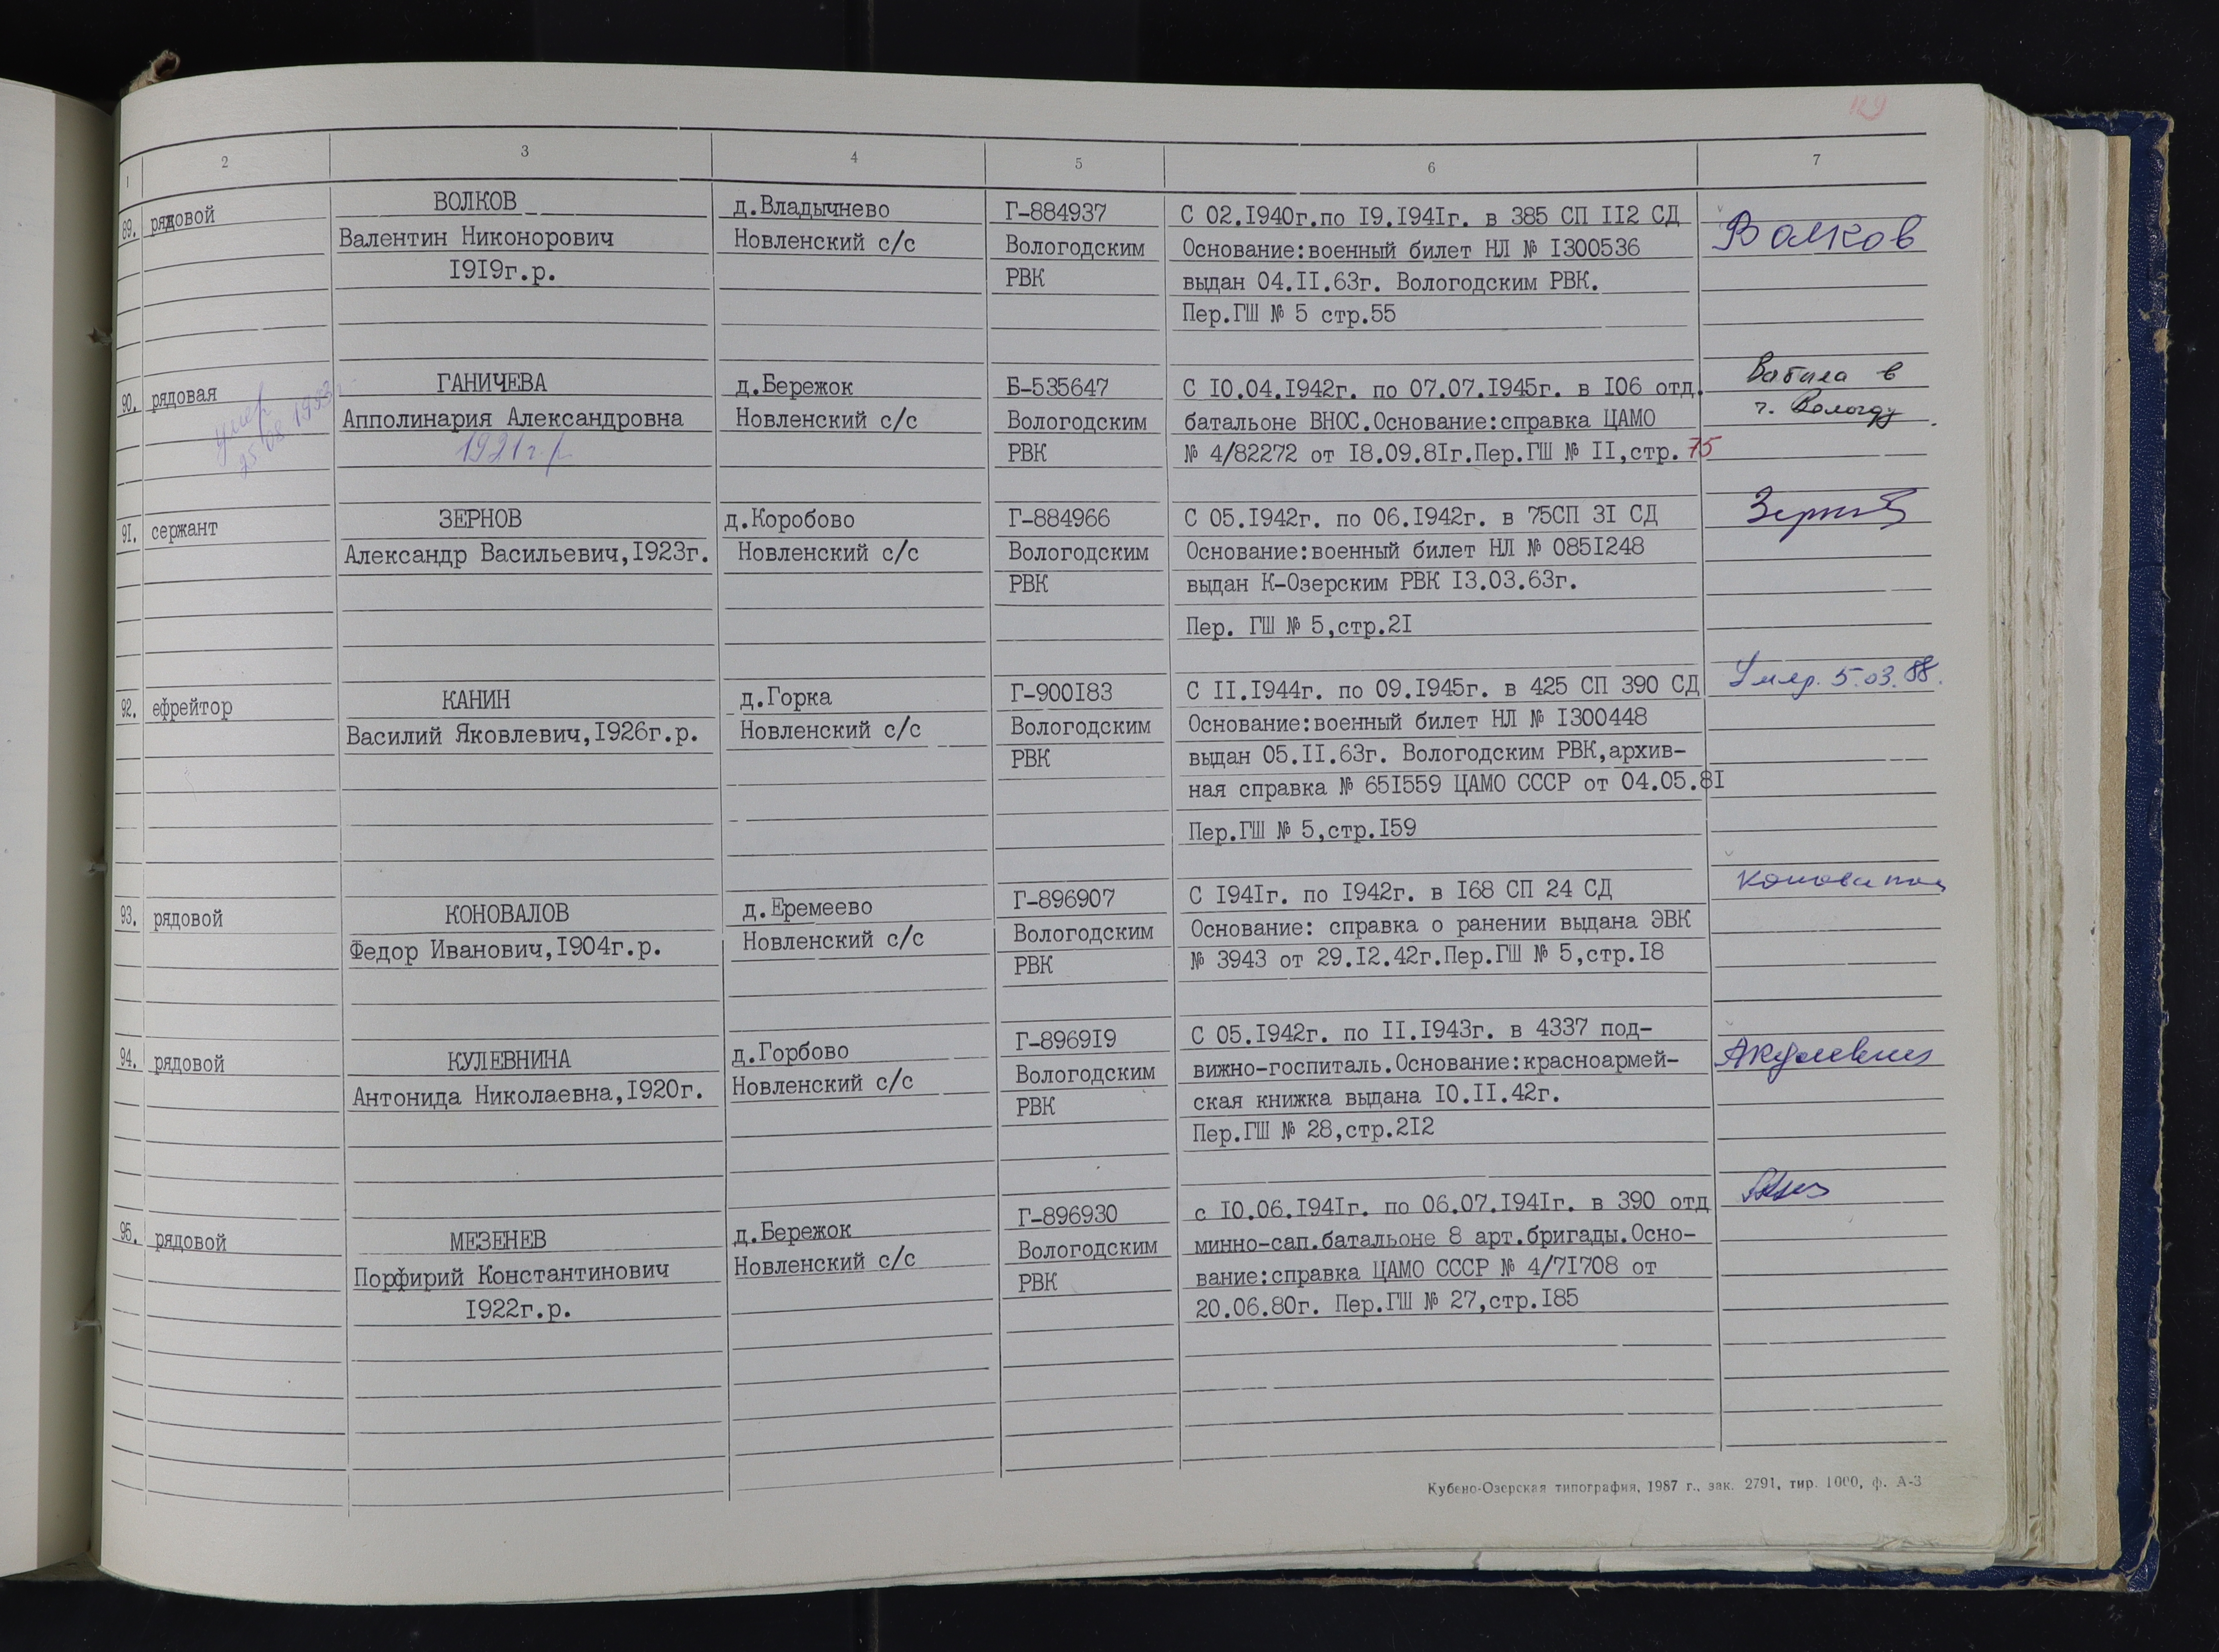 129
1 2 3 4 5 6 7
89. рядовой
ВОЛКОВ
Валентин Никонорович
1919г.р.
д.Владычнево
Новленский с/с
Г-884937
Вологодским
РВК
С 02.1940г.по 19.1941г. в 385 СП 112 СД
Основание:военный билет НЛ № 1300536
выдан 04.11.63г. Вологодским РВК.
Пер.ГШ № 5 стр.55
Волков
90. рядовая
умер
25.08.1993г.
ГАНИЧЕВА
Апполинария Александровна
1921г.р.
д.Бережок
Новленский с/с
Б-535647
Вологодским
РВК
С 10.04.1942г. по 07.07.1945г. в 106 отд.
батальоне ВНОС.Основание:справка ЦАМО
№ 4/82272 от 18.09.81г.Пер.ГШ № 11,стр. 75
Выбыла в
г. Вологду
91. сержант
ЗЕРНОВ
Александр Васильевич,1923г.
д.Коробово
Новленский с/с
Г-884966
Вологодским
РВК
С 05.1942г. по 06.1942г. в 75СП 31 СД
Основание:военный билет НЛ № 0851248
выдан К-Озерским РВК 13.03.63г.
Пер. ГШ № 5,стр.21
Зернов
92. ефрейтор
КАНИН
Василий Яковлевич,1926г.р.
д.Горка
Новленский с/с
Г-900183
Вологодским
РВК
С 11.1944г. по 09.1945г. в 425 СП 390 СД
Основание:военный билет НЛ № 1300448
выдан 05.11.63г. Вологодским РВК,архив-
ная справка № 651559 ЦАМО СССР от 04.05.81
Пер.ГШ № 5,стр.159
Умер. 5.03.88.
93. рядовой
КОНОВАЛОВ
Федор Иванович,1904г.р.
д.Еремеево
Новленский с/с
Г-896907
Вологодским
РВК
С 1941г. по 1942г. в 168 СП 24 СД
Основание: справка о ранении выдана ЭВК
№ 3943 от 29.12.42г.Пер.ГШ № 5,стр.18
94. рядовой
КУЛЕВНИНА
Антонида Николаевна,1920г.
д.Горбово
Новленский с/с
Г-896919
Вологодским
РВК
С 05.1942г. по 11.1943г. в 4337 под-
вижно-госпиталь.Основание:красноармей-
ская книжка выдана 10.11.42г.
Пер.ГШ № 28,стр.212
95. рядовой
МЕЗЕНЕВ
Порфирий Константинович
1922г.р.
д.Бережок
Новленский с/с
Г-896930
Вологодским
РВК
с 10.06.1941г. по 06.07.1941г. в 390 отд
минно-сап.батальоне 8 арт.бригады.Осно-
вание:справка ЦАМО СССР № 4/71708 от
20.06.80г. Пер.ГШ № 27,стр.185
Кубено-Озерская типография, 1987 г., зак. 2791, тир. 1000, ф. А-3